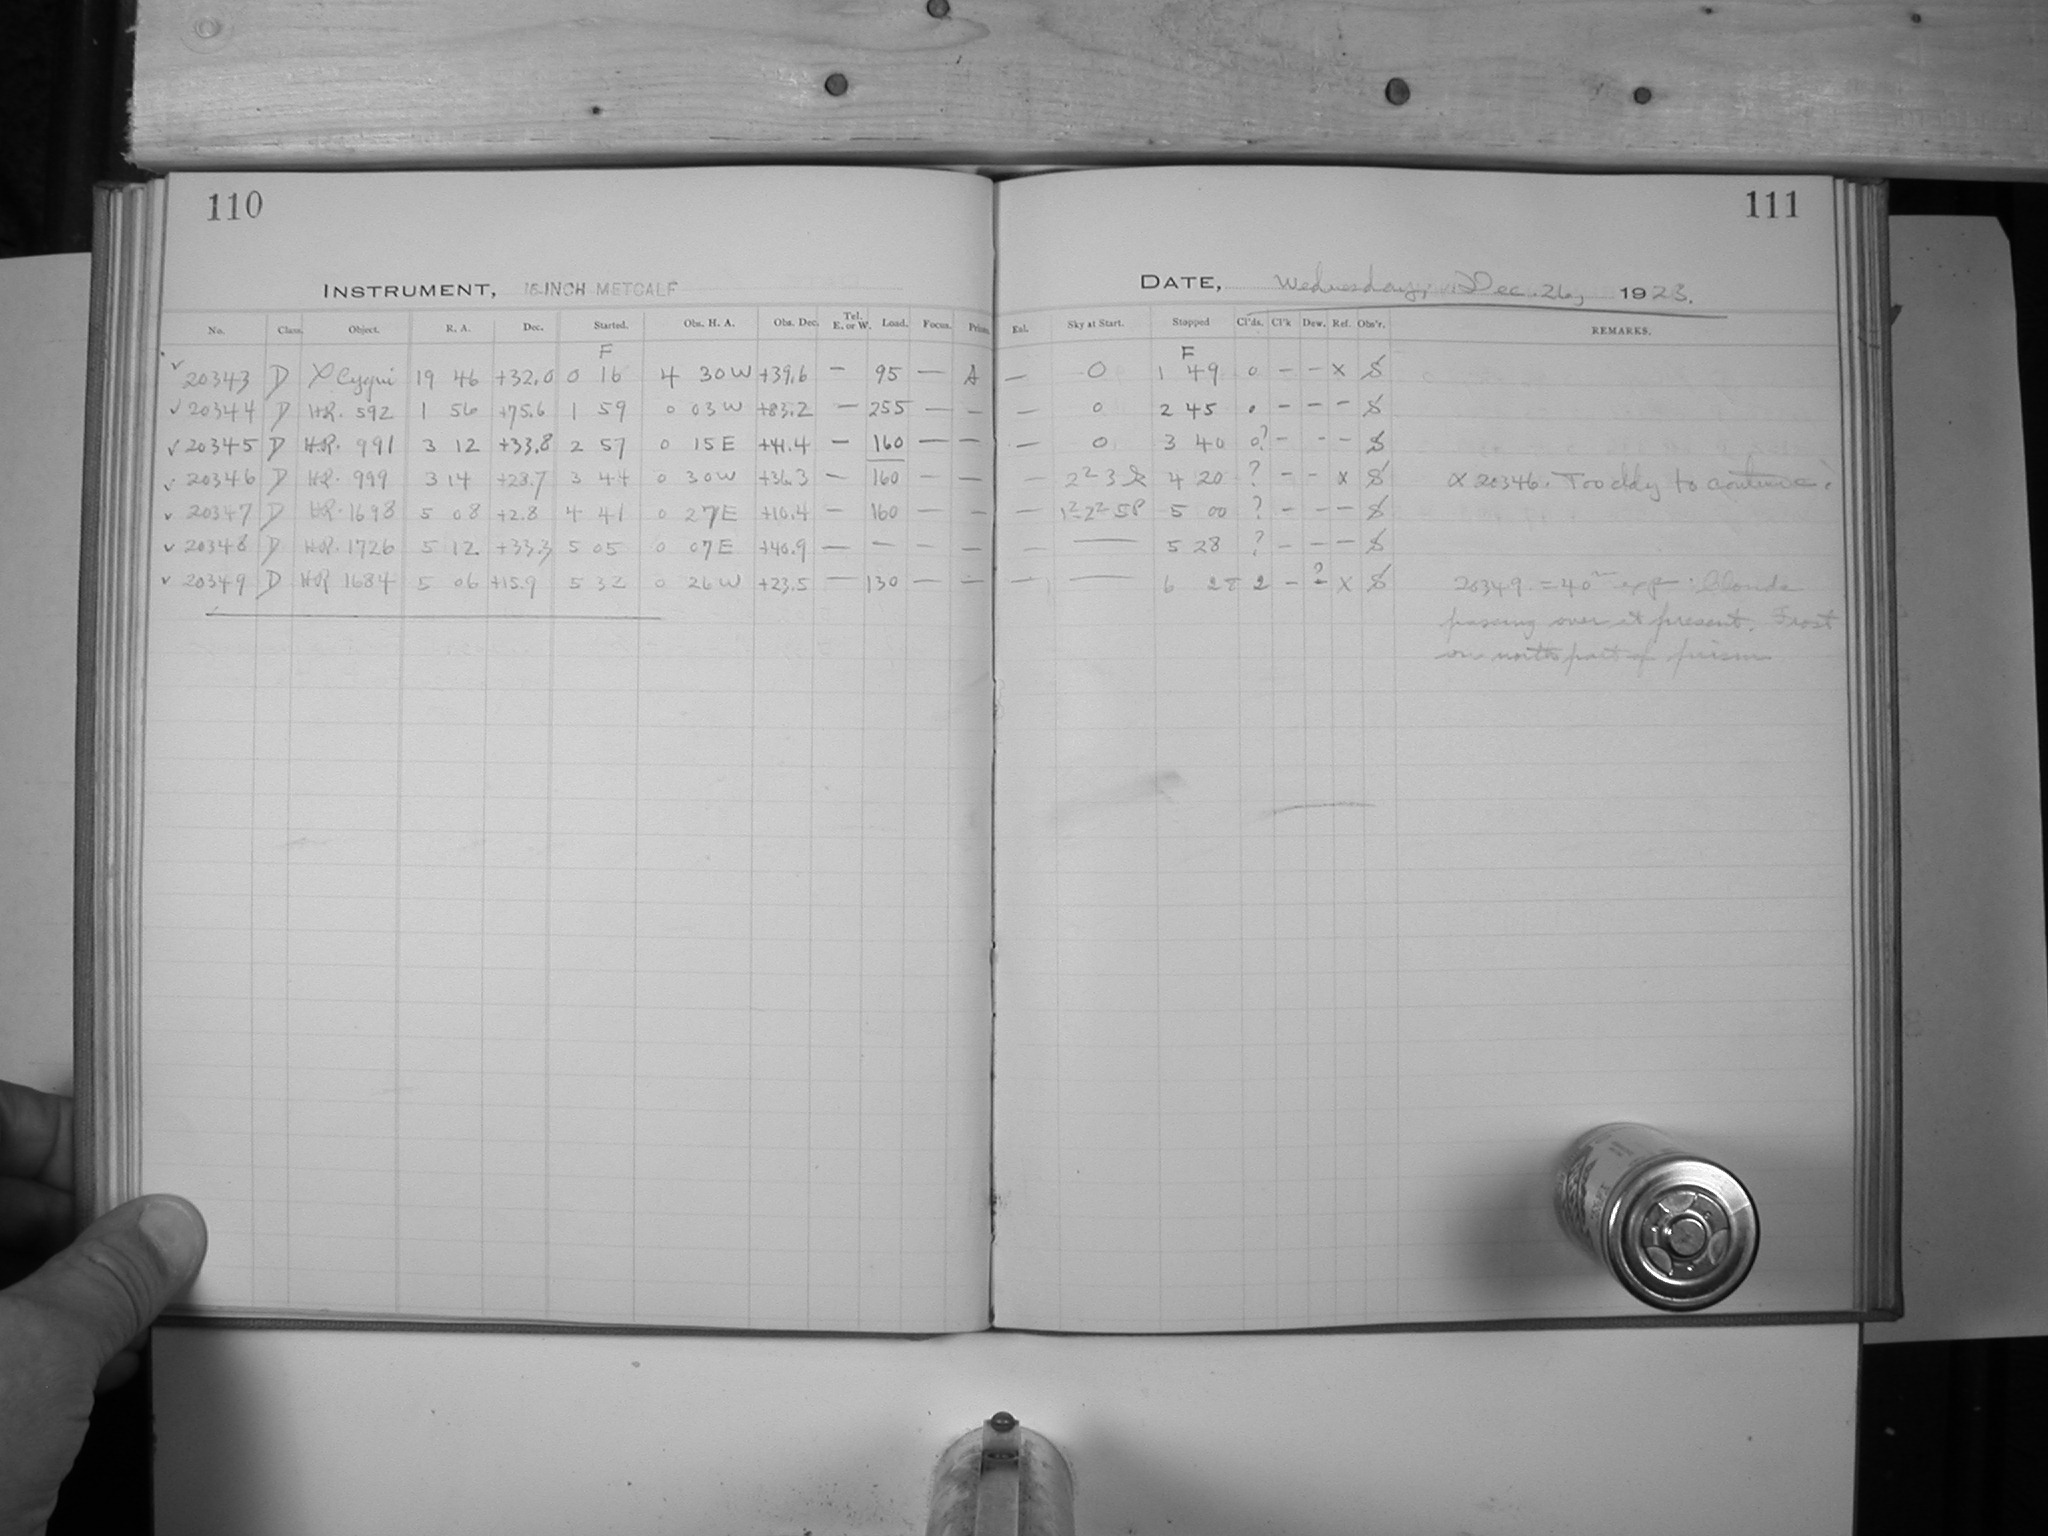 110
INSTRUMENT, 16-INCH METCALF
No. Class. Object. R. A. Dec. Started. Obs. H. A. Obs. Dec. Tel. E. or W. Load. Focus. Prism.
F
✓ 20343 D X Cygni 19 46 +32.0 0 16 4 30 W +39.6 — 95 — A
✓ 20344 D H.R. 592 1 56 +75.6 1 59 0 03 W +83.2 — 255 — —
✓ 20345 D H.R. 991 3 12 +33.8 2 57 0 15 E +41.4 — 160 — —
✓ 20346 D H.R. 999 3 14 +28.7 3 44 0 30 W +36.3 — 160 — —
✓ 20347 D H.R. 1698 5 08 +2.8 4 41 0 27 E +10.4 — 160 — —
✓ 20348 D H.R. 1726 5 12 +33.3 5 05 0 07 E +40.9 — — — —
✓ 20349 D H.R. 1684 5 06 +15.9 5 32 0 26 W +23.5 — 130 — —
111
DATE, Wednesday, Dec. 26, 1923.
Exl. Sky at Start. Stopped Cl'ds. Cl'k Dew. Ref. Obs'r. REMARKS.
F
— 0 1 49 0 – – x S
— 0 2 45 0 – – – S
— 0 3 40 0? – – – S
— 4 20 ? – – x S x 20346. Too cldy to continue.
— 5 00 ? – – – S
— — 5 28 ? – – – S
— — 6 28 2 – ? x S 20349. = 40m exp. Clouds
passing over at present. Frost
on north part of prism